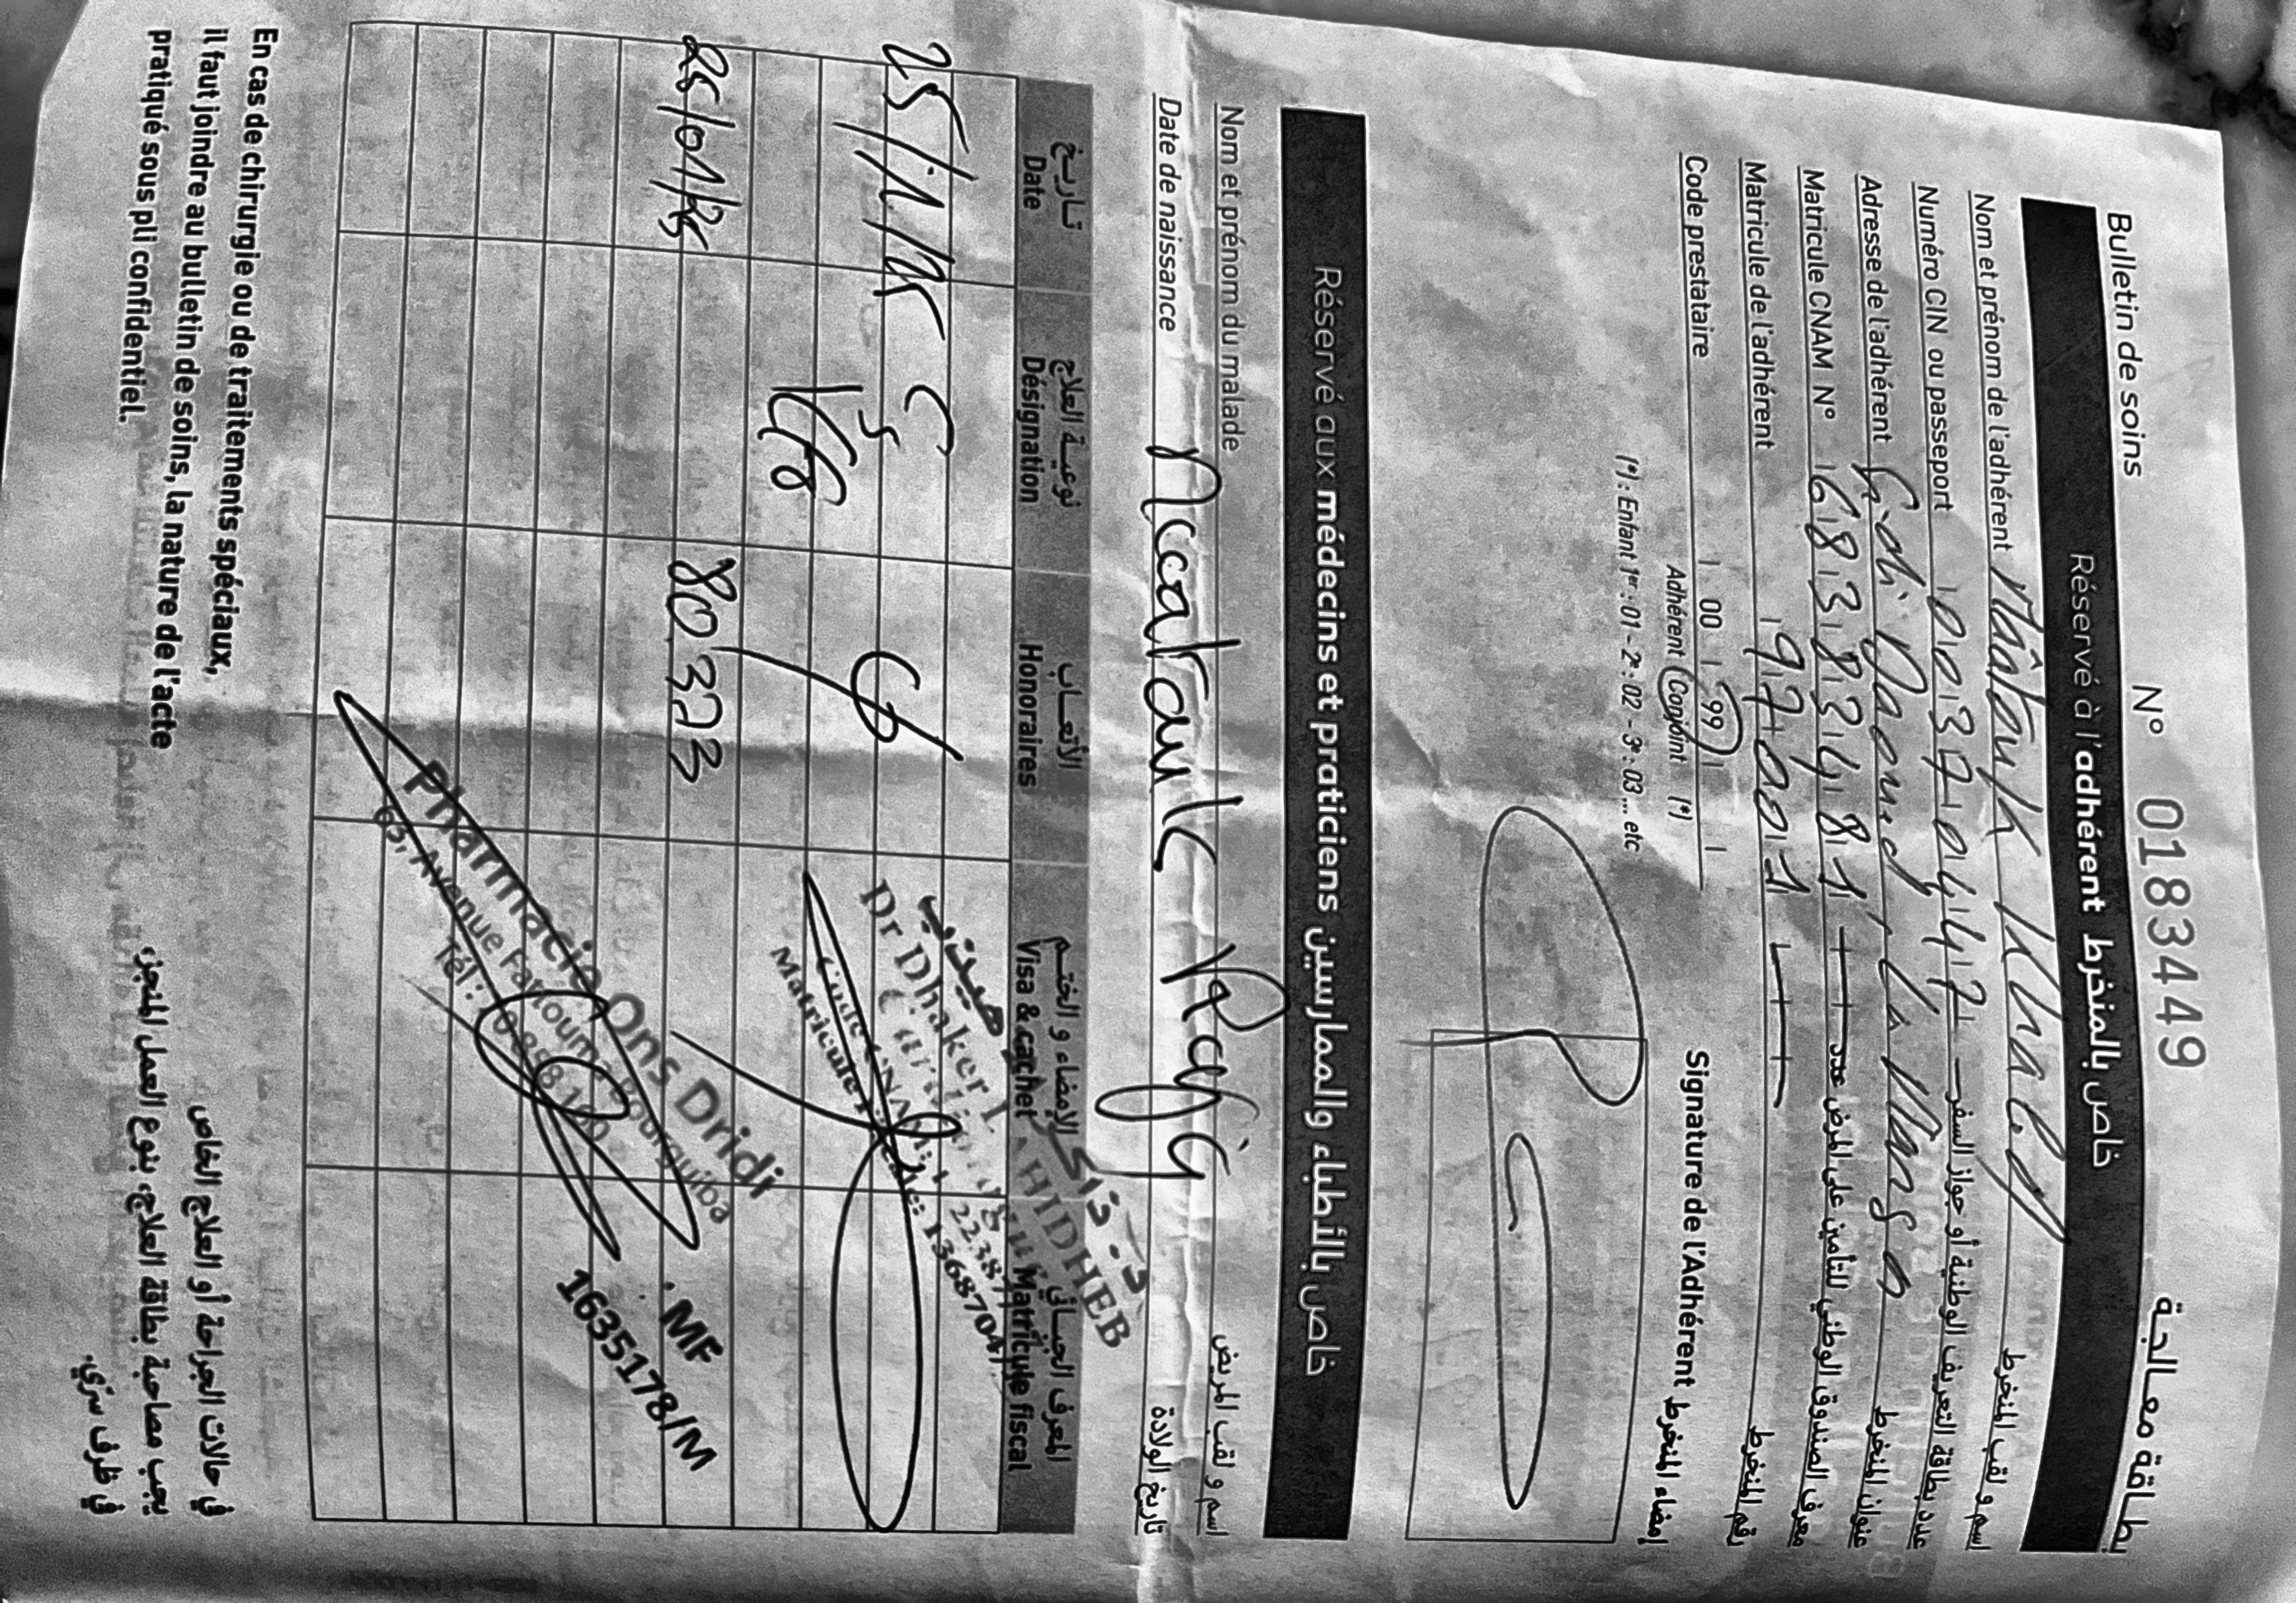 Bulletin de soins N° 0183449 بطاقة معالجة
Réservé à l'adhérent خاص بالمنخرط
Nom et prénom de l'adhérent Mâatouk Khaled اسم و لقب المنخرط
Numéro CIN ou passeport 00370447 عدد بطاقة التعريف الوطنية أو جواز السفر
Adresse de l'adhérent Sidi Daoud, La Marsa عنوان المنخرط
Matricule CNAM N° 68383481 معرف الصندوق الوطني للتأمين على المرض عدد
Matricule de l'adhérent 97001 رقم المنخرط
Code prestataire 00 99
Adhérent Conjoint (*)
(*) : Enfant 1er : 01 - 2e : 02 - 3e : 03 ... etc
Signature de l'Adhérent إمضاء المنخرط
Réservé aux médecins et praticiens خاص بالأطباء والممارسين
Nom et prénom du malade اسم و لقب المريض
Maatouk
Date de naissance تاريخ الولادة
تاريخ نوعية العلاج الأتعاب الإمضاء و الختم المعرف الجبائي
Date Désignation Honoraires Visa & cachet Matricule fiscal
25/1/25 C
Dr Dhaker
HIDHEB
25/01/25 80.323
Pharmacie Ons Dridi
63, Avenue Fattouma Bourguiba
Tél :
MF
1635178/M
En cas de chirurgie ou de traitements spéciaux,
il faut joindre au bulletin de soins, la nature de l'acte
pratiqué sous pli confidentiel.
في حالات الجراحة أو العلاج الخاص
يجب مصاحبة بطاقة العلاج، بنوع العمل المنجز،
في ظرف سرّي.